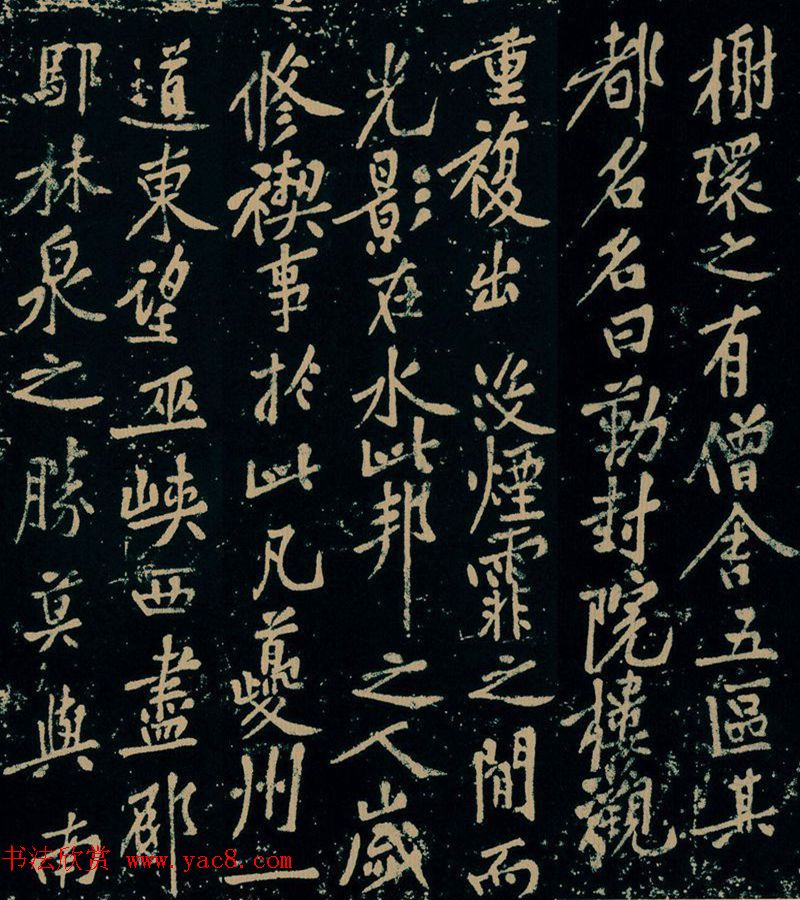 榭環之有僧舍五區其
都名名曰勤封院樓觀
重複出没煙霏之間而
光影在水此邦之人歲
修禊事於此凡夔州一
道東望巫峽西盡郁
鄢林泉之勝莫與南
书法欣赏 www.yac8.com